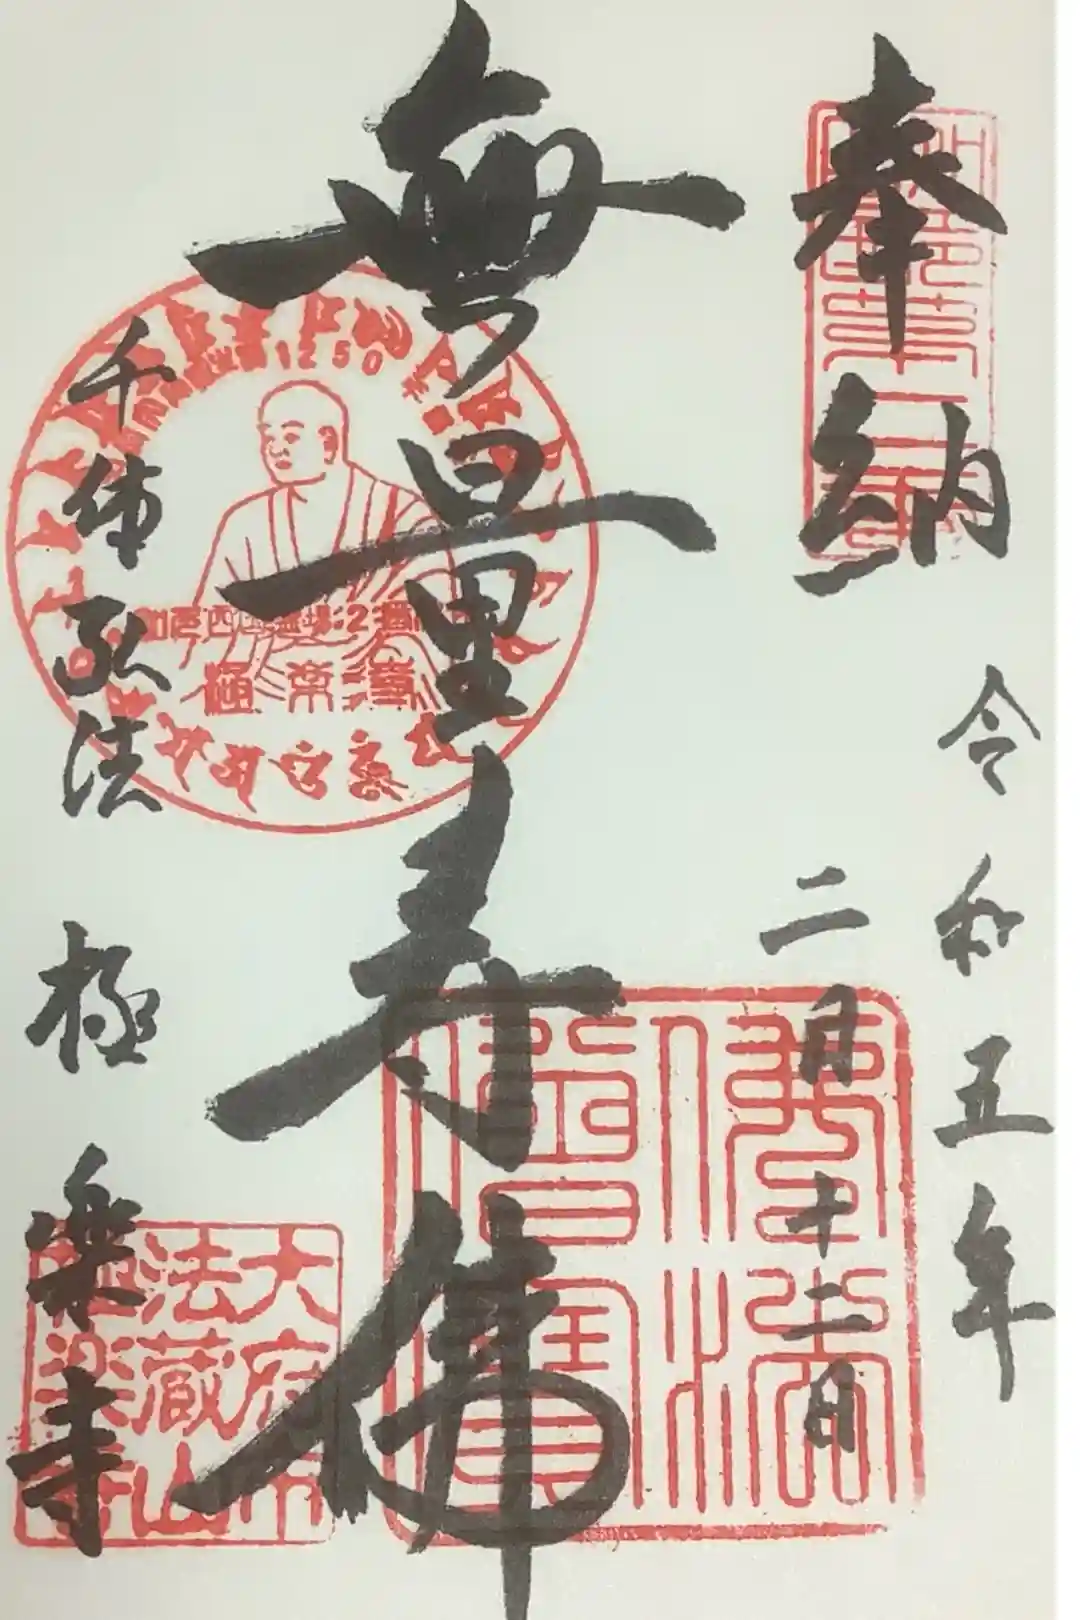 奉納
令和五年
二月十二日
無量寿佛
千体弘法
極楽寺
1250
知多四国霊場2番
極楽寺
佛法
僧寶
大府市
法蔵山
極楽寺